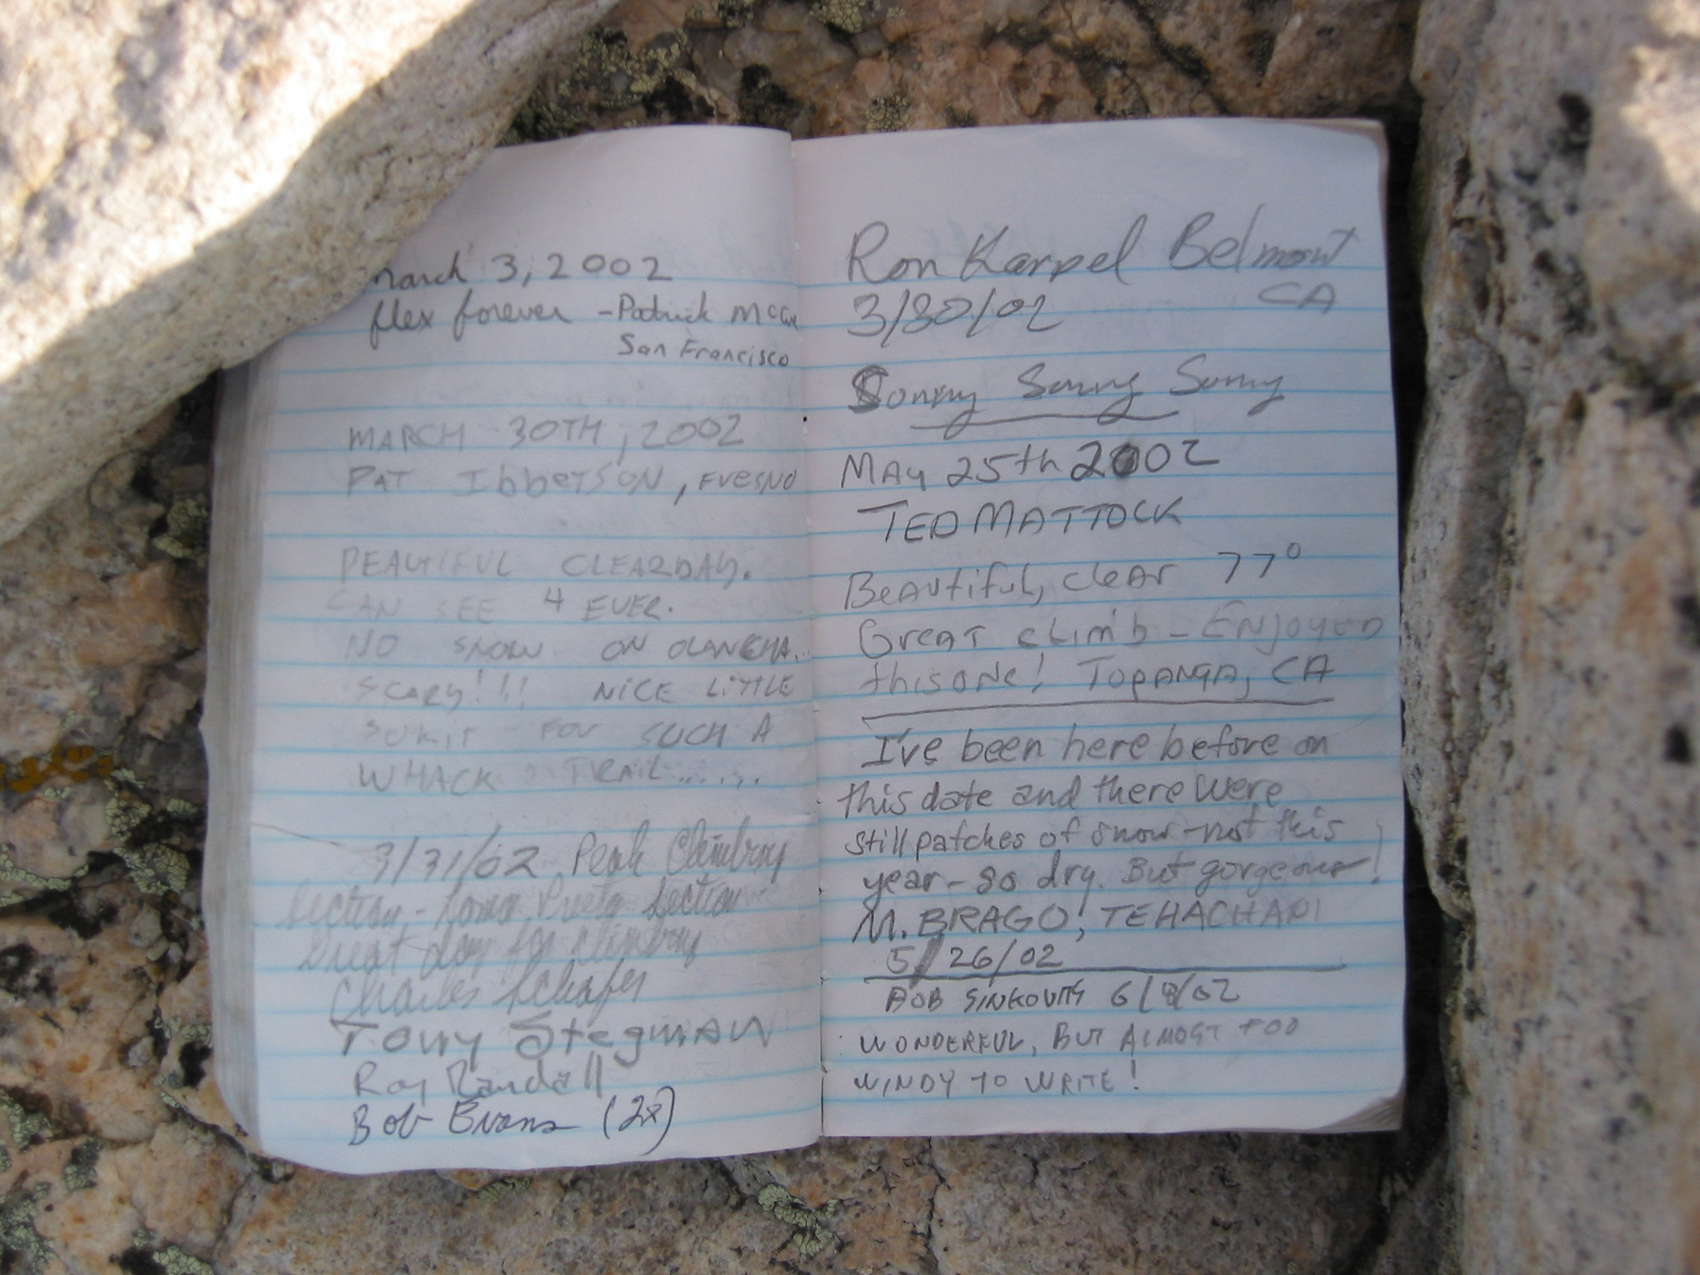 March 3, 2002
flex forever - Patrick McC
San Francisco
MARCH 30TH, 2002
PAT IbbeTSON, FresNO
BEAUTIFUL CLEARDAY.
CAN SEE 4 EVER.
NO SNOW ON OLANCHA.
SCARY!!! NICE LITTLE
SUMIT FOR SUCH A
WHACK TRAIL......
3/31/02 Peak Climbing
Section - Loma Prieta Section
Great day for climbing
Charles Schafer
Tony StegmAN
Ray Randall
Bob Evans (2x)
Ron Karpel Belmont
CA
3/30/02
Sonny Sonny Sonny
MAy 25th 2002
TED MATTOCK
BeAutiful, cleAr 77°
Great climb - ENJOYED
this one! TOPANGA, CA
I've been here before on
this date and there were
still patches of snow - not this
year - so dry. But gorgeous!
M. BRAGO, TEHACHAPI
5/26/02
BOB SINKOVITS 6/8/02
WONDERFUL, BUT ALMOST TOO
WINDY TO WRITE!